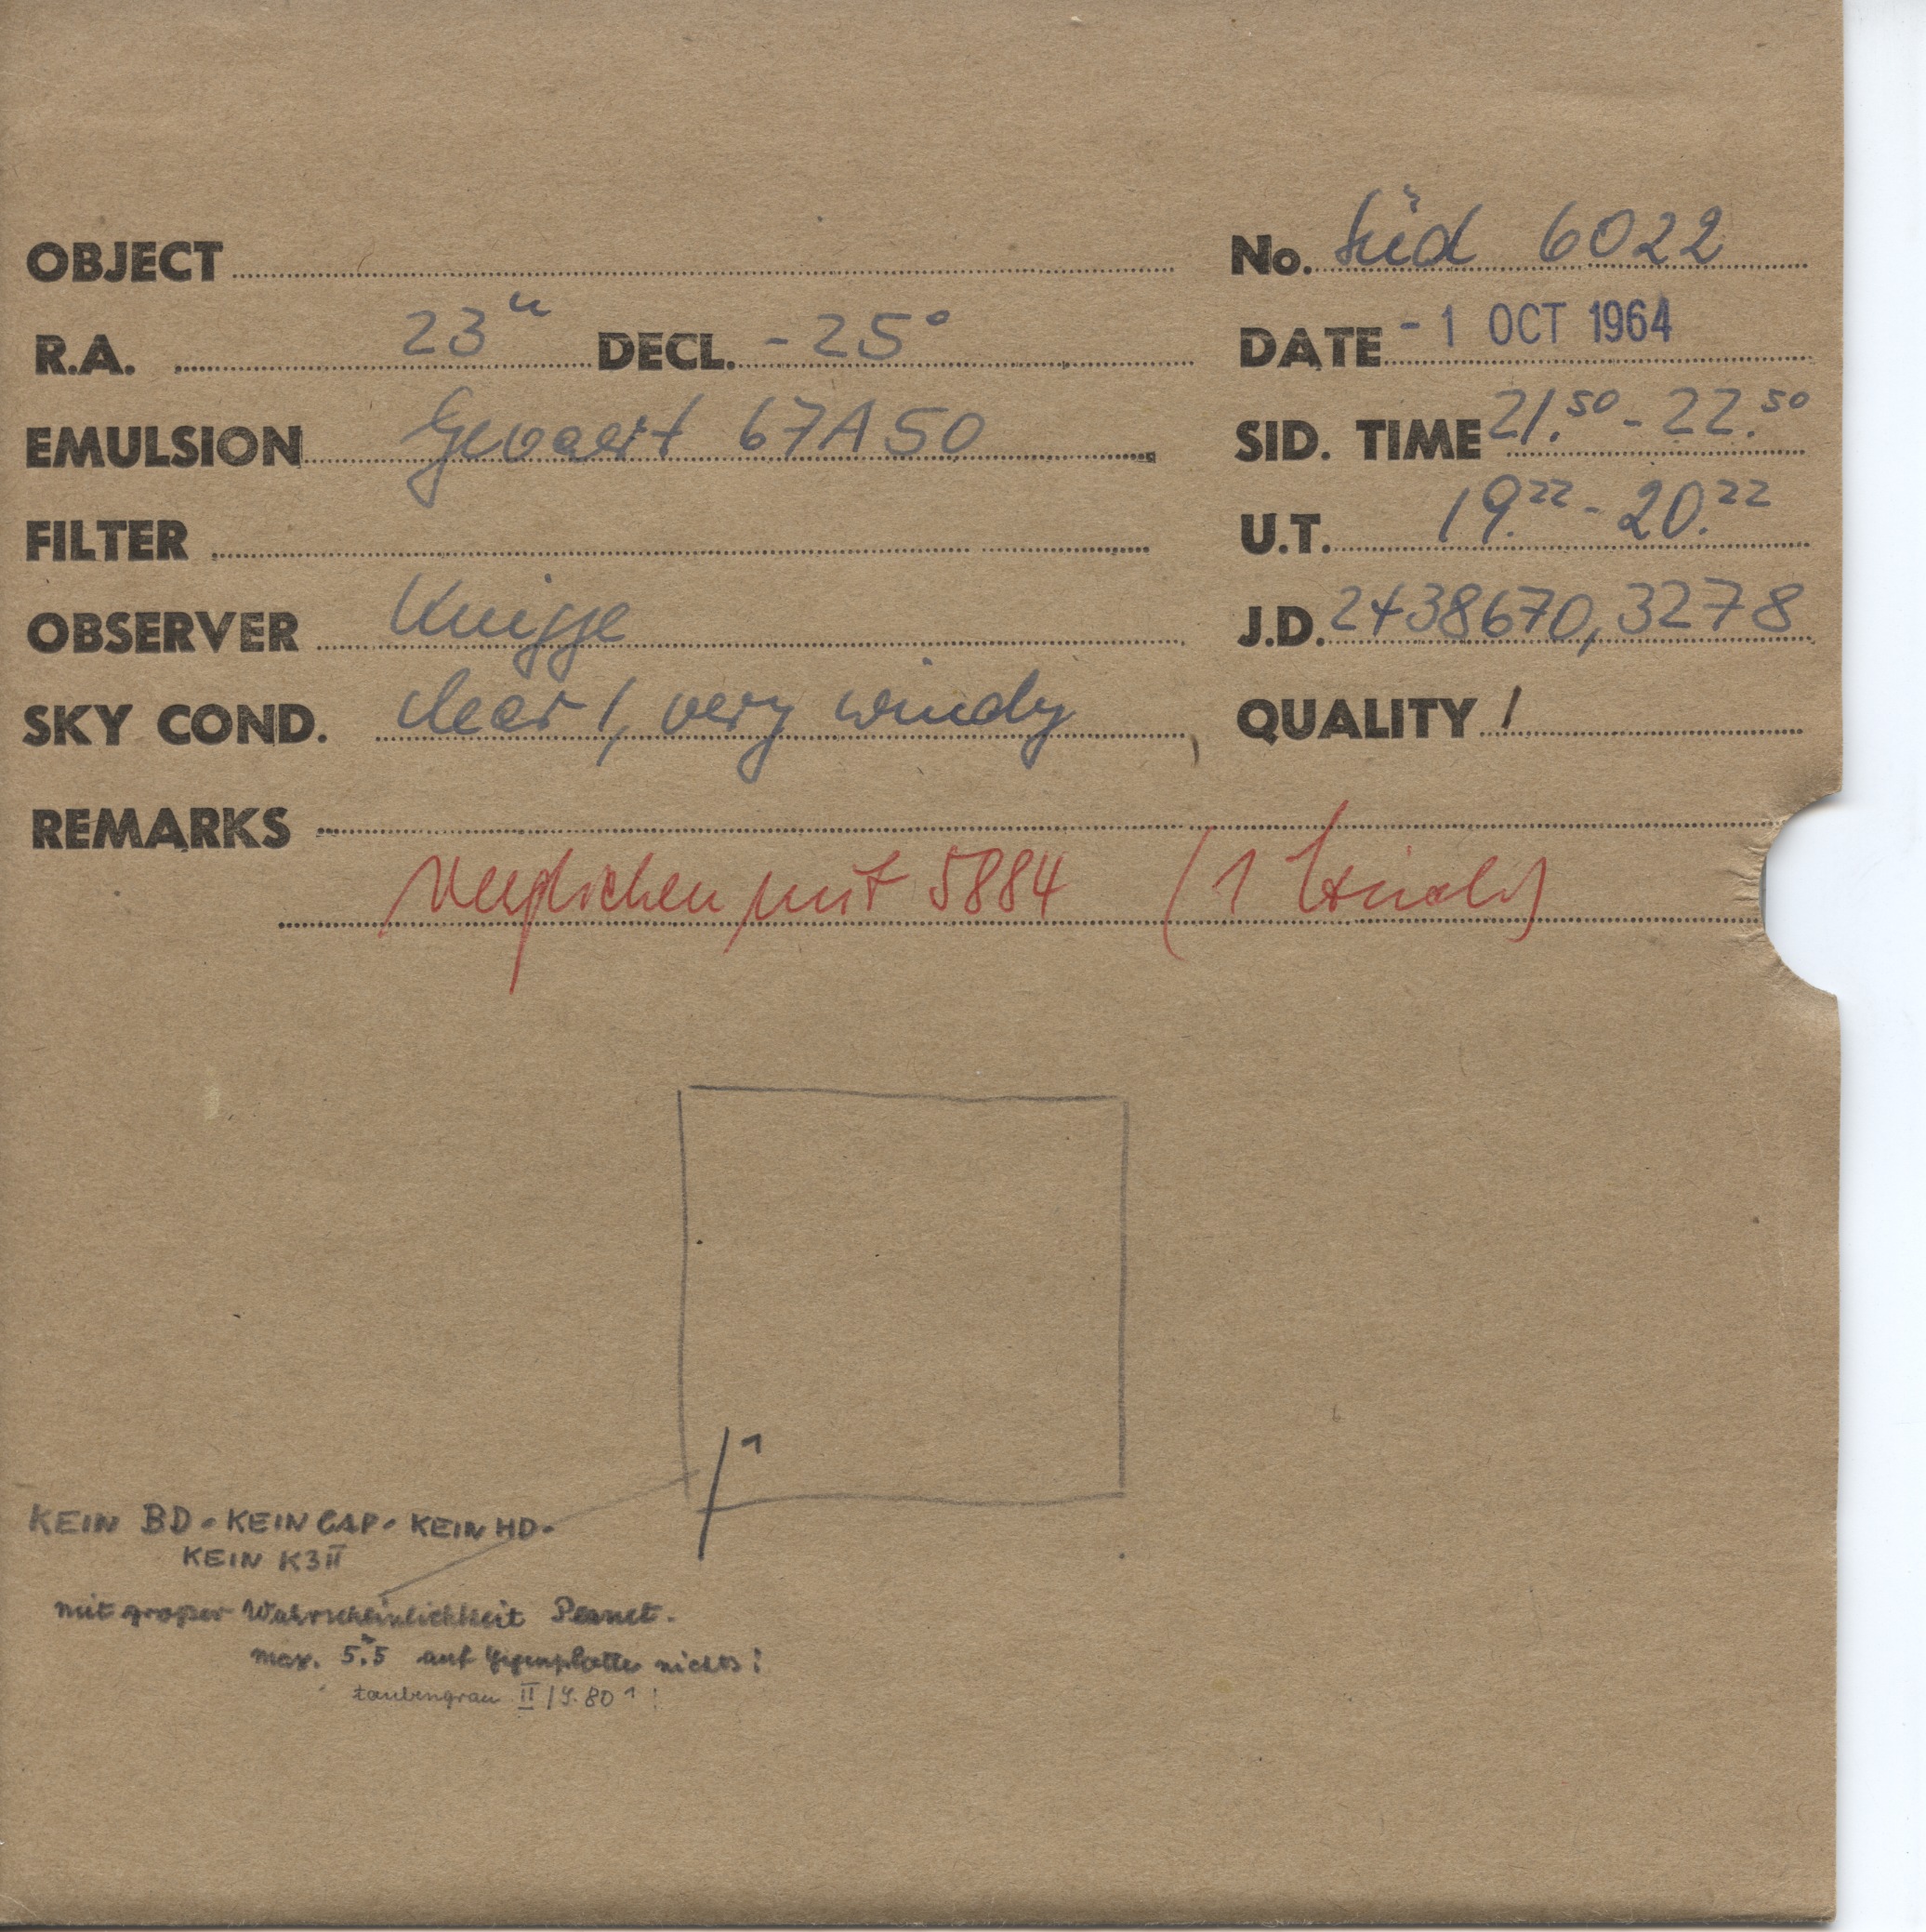 OBJECT
No. Süd 6022
R.A. 23ʰ DECL. -25°
DATE -1 OCT 1964
EMULSION Gevaert 67A50
SID. TIME 21.⁵⁰ - 22.⁵⁰
FILTER
U.T. 19.²² - 20.²²
OBSERVER Knigge
J.D. 2438670,3278
SKY COND. clear 1, very windy
QUALITY 1
REMARKS
verglichen mit 5884 (1
1
KEIN BD - KEIN CAP - KEIN HD -
KEIN K3II
mit großer Wahrscheinlichkeit Planet.
max. 5.ᵐ5 auf Gegenplatte nichts!
taubengrau II